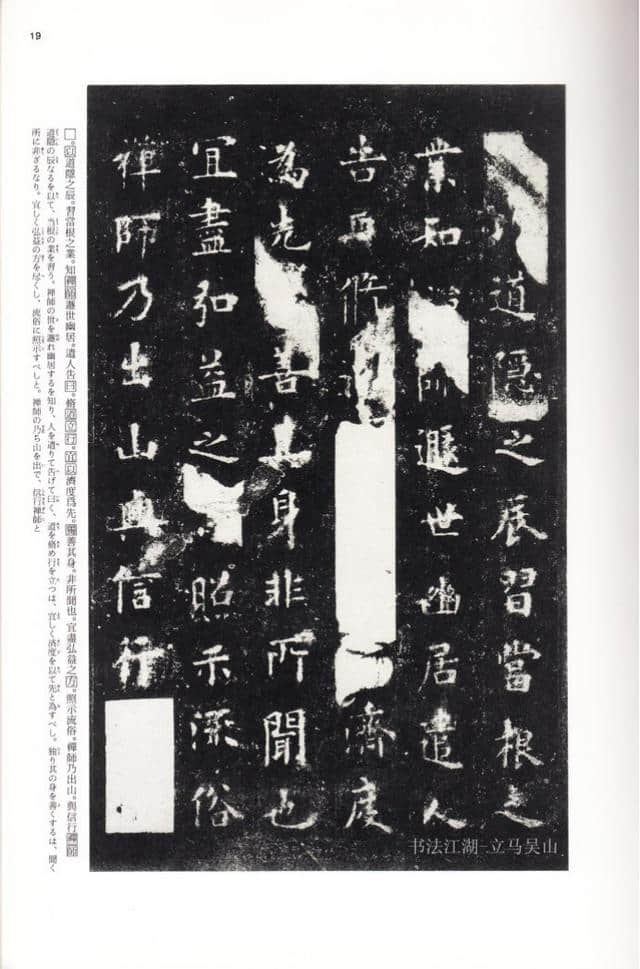 19
道隱之辰習當根之
業知師遯世幽居遣人
告曰脩道濟度
為先善其身非所聞也
宜盡弘益之照示流俗
禪師乃出山與信行
书法江湖-立马吴山
□。以道隱之辰。習當根之業。知禪師遯世幽居。遣人告曰。脩道立行。宜以濟度爲先。獨善其身。非所聞也。宜盡弘益之方。照示流俗。禪師乃出山。與信行禪師
道隠の辰なるを以て、当根の業を習う。禅師の世を遯れ幽居するを知り、人を遣りて告げて曰く、道を脩め行を立つは、宜しく済度を以て先と為すべし。独り其の身を善くするは、聞く
所に非ざるなり。宜しく弘益の方を尽くし、流俗に照示すべしと。禅師の乃ち山を出で、信行禅師と